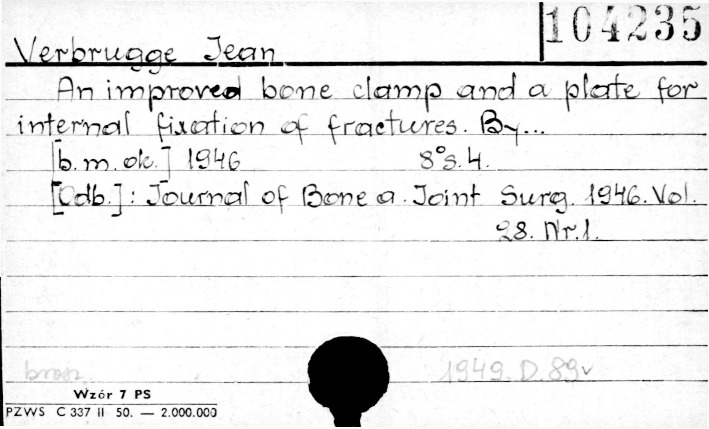 104235
Verbrugge Jean
An improved bone clamp and a plate for
internal fixation of fractures. By...
[b.m.ok.] 1946 8°s.4.
[Odb.]: Journal of Bone a. Joint Surg. 1946. Vol.
28. Nr.1.
brosz. 1949. D. 89
Wzór 7 PS
PZWS C 337 II 50. — 2.000.000